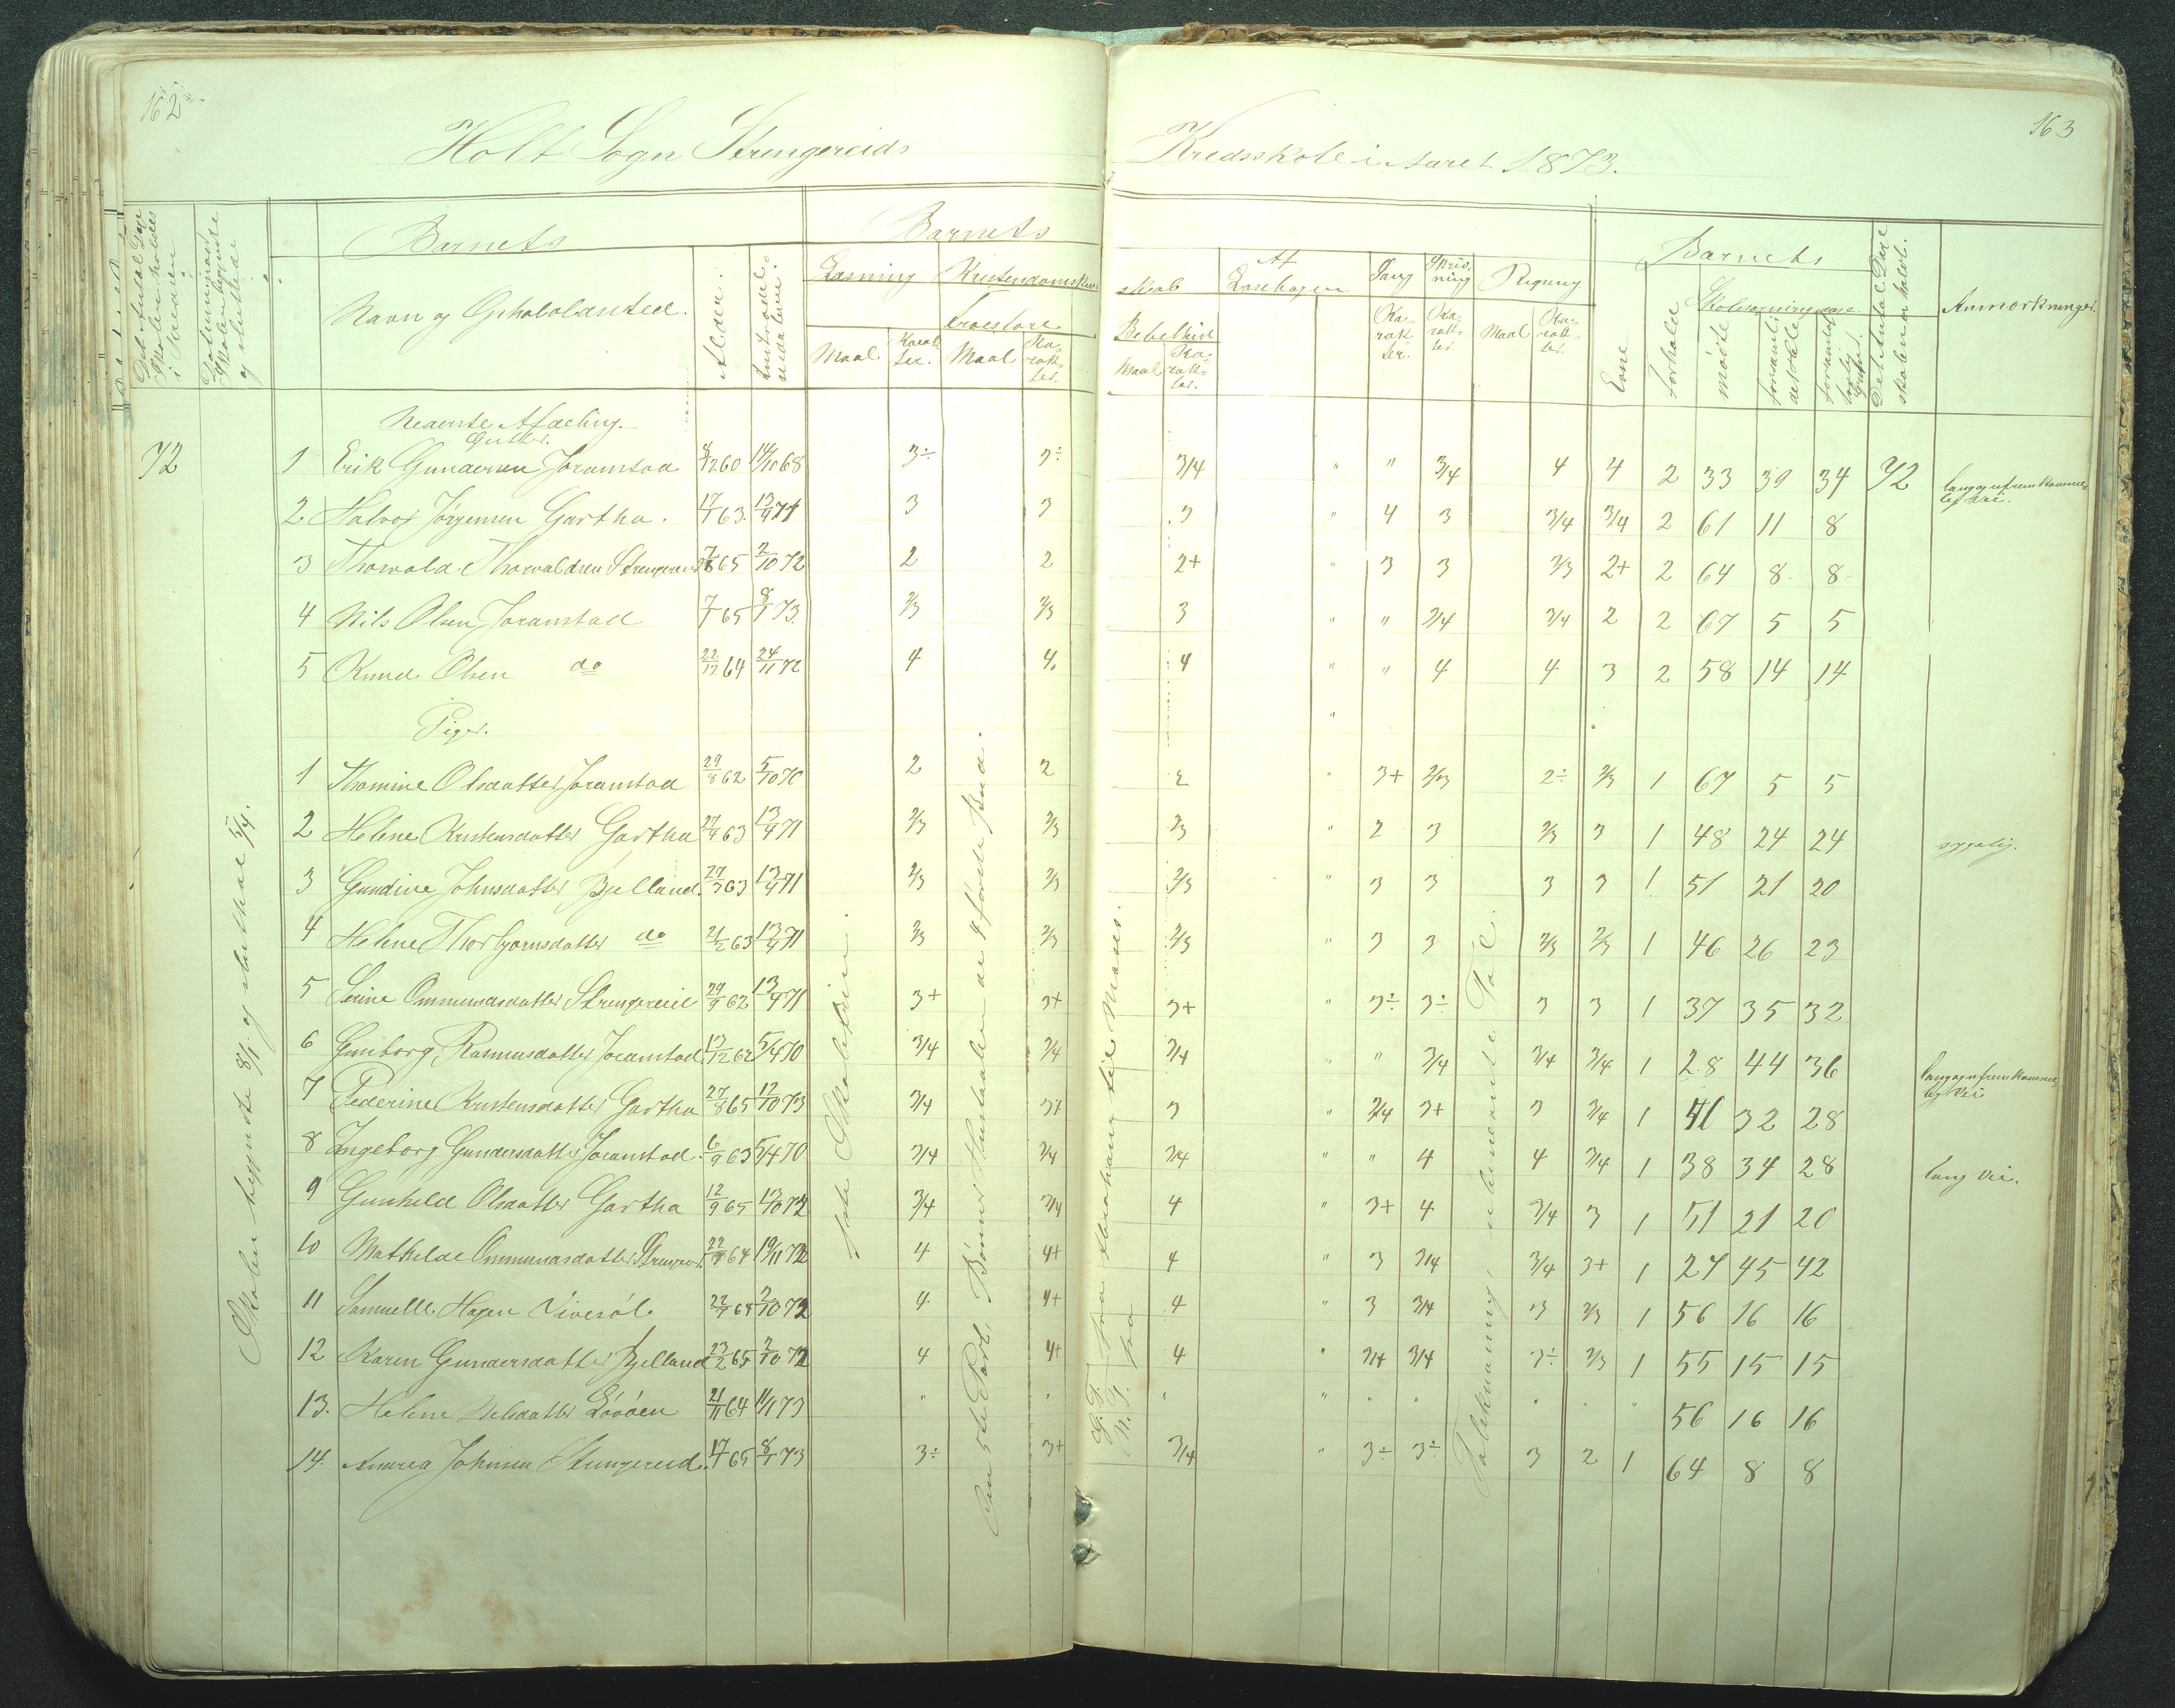 162
163
Holt Sogn Strengereids Kredsskole i Aaret 1873.
Det Antal Dage Skolen holdes i Kredsen
Datum naar Skolen begyndte og sluttede
Barnets
Navn og Opholdssted.
Alder.
Indtrædelsesdatum.
Barnets
Læsning
Kristendomskundskab
Troeslære
Bibelhist
Af Læsebogen
Sang
Skrivning
Regning
Maal
Karakter.
Maal
Karakter.
Maal
Karakter.
Karakter.
Karakter.
Maal
Karakter.
Barnets
Evne
Forhold
Skolesøgningsdage
mødte
forsømt i det Hele
forsømt af lovlig Grund
Det Antal Dage skolen er holdt.
Anmærkninger.
Nederste Afdeling.
Gutter.
72 1 Erik Gundersen Joramstad 8/12 60 14/10 68 3÷ 3÷ 3/4 " " 3/4 4 4 2 33 39 34 72 lang og ufremkommelig Vei.
2 Halvor Jørgensen Gartha. 17/1 63. 13/9 71 3 3 3 " 4 3 3/4 3/4 2 61 11 8
3 Thorvald Thorvaldsen Strengereid 7/8 65 2/10 72 2 2 2+ " 3 3 2/3 2+ 2 64 8 8
4 Nils Olsen Joramstad 7/1 65 8/1 73. 2/3 2/3 3 " " 3/4 3/4 2 2 67 5 5
5 Knud Olsen do 22/12 64 24/11 72 4 4. 4 " " 4 4 3 2 58 14 14
Piger.
1 Thomine Olsdatter Joramstad 29/8 62 5/10 70 2 2 2 " 3+ 2/3 2÷ 2/3 1 67 5 5
2 Helene Kristensdatter Gartha 27/9 63 13/9 71 2/3 2/3 2/3 " 2 3 2/3 3 1 48 24 24 sygelig.
3 Gundine Johnsdatter Bjelland. 27/3 63 13/9 71 2/3 2/3 2/3 " 3 3 3 3 1 51 21 20
4 Helene Thorbjørnsdatter do 21/2 63 13/9 71 2/3 2/3 2/3 " 3 3 2/3 2/3 1 46 26 23
5 Serine Ommundsdatter Strengereid 29/9 62 13/4 71 3+ 3+ 3+ " 3÷ 3÷ 3 3 1 37 35 32
6 Gunborg Rasmusdatter Joramstad 13/12 62 5/4 70 3/4 3/4 3/4 " " 3/4 3/4 3/4 1 28 44 36 lang og ufremkommelig Vei
7 Pederine Kristensdatter Gartha 27/8 65 12/10 73 3/4 3+ 3 " 3/4 3+ 3 3/4 1 41 32 28
8 Ingeborg Gundersdatter Joramstad. 6/9 63 5/4 70 3/4 3/4 3/4 " " 4 4 3/4 1 38 34 28 lang Vei.
9 Gunhild Olsdatter Gartha 12/9 65 13/10 72 3/4 3/4 4 " 3+ 4 3/4 3 1 51 21 20
10 Mathilde Ommundsdatter Strengereid. 22/9 64 19/11 72 4 4+ 4 " 3 3/4 3/4 3+ 1 27 45 42
11 Samuelle Hagen 22/9 64 2/10 72 4 4+ 4 " 3 3/4 3 2/3 1 56 16 16
12 Karen Gundersdatter Bjelland 23/2 65 2/10 72 4 4+ 4 " 3/4 3/4 3÷ 2/3 1 55 15 15
13. Helene Nelsdatter Løvøen 21/11 64 11/1 73 " " " " " " " " 56 16 16
14. Andrea Johnsen Strengereid. 17/1 65 8/1 73 3÷ 3+ 3/4 " 3÷ 3÷ 3 2 1 64 8 8
Skolen begyndte 8/1. og sluttede 5/4.
Den 5te Part, Bønner Hustavlen de 4 første Bud.
G. T. fra Abraham til Moses.
N. T. fra
Talskrivning, ubenævnte Tal.